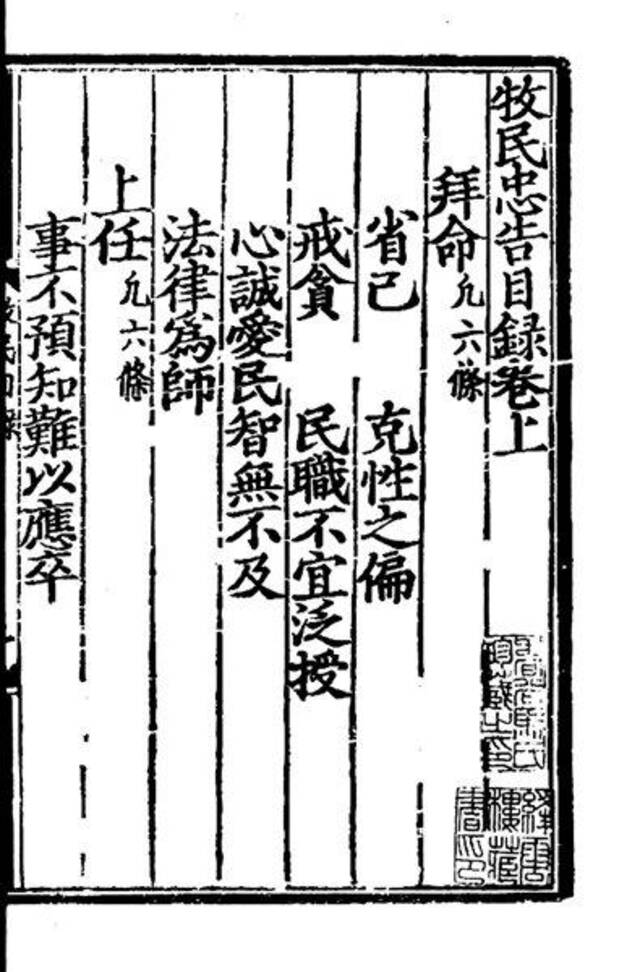 牧民忠告目録卷上
拜命 凢六條
省己 克性之偏
戒貪 民職不宜泛授
心誠愛民智無不及
法律爲師
上任 凢六條
事不預知難以應卒